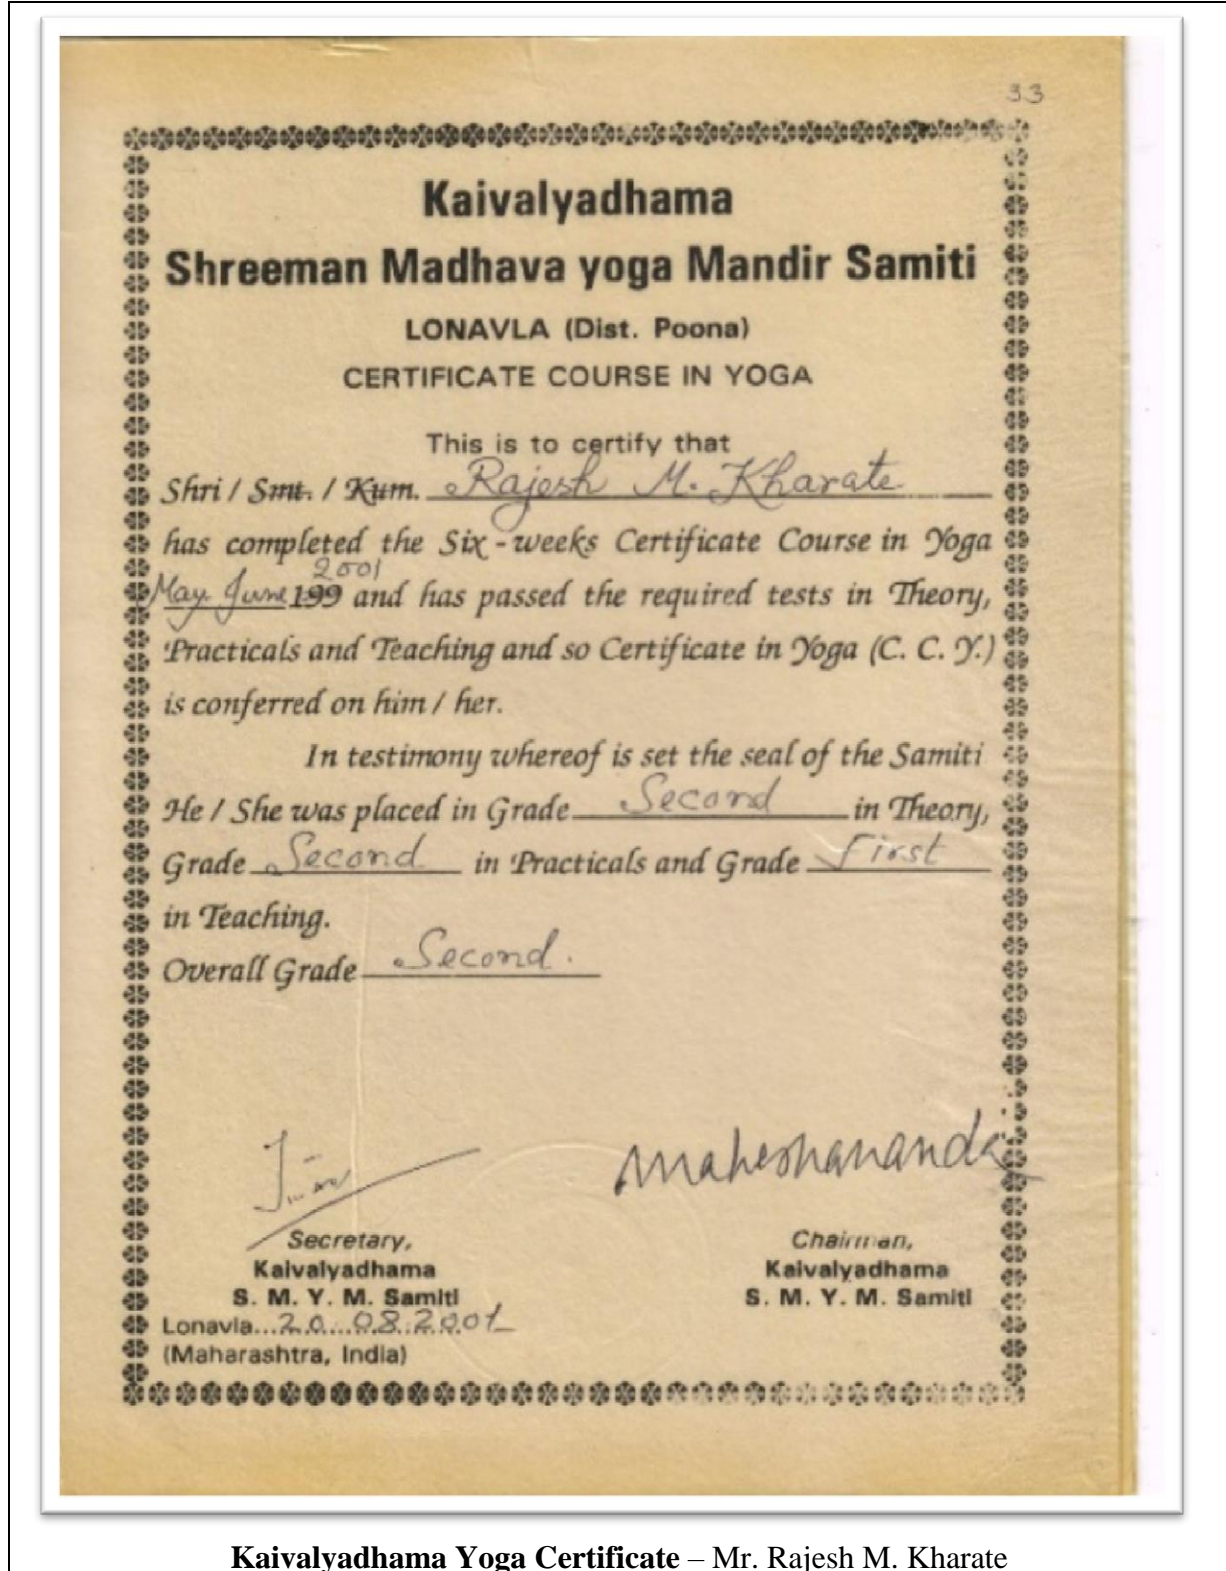 33
Kaivalyadhama
Shreeman Madhava yoga Mandir Samiti
LONAVLA (Dist. Poona)
CERTIFICATE COURSE IN YOGA
This is to certify that
Shri / Smt. / Kum. Rajesh M. Kharate
has completed the Six-weeks Certificate Course in Yoga
2001
May. June 199 and has passed the required tests in Theory,
Practicals and Teaching and so Certificate in Yoga (C. C. Y.)
is conferred on him / her.
In testimony whereof is set the seal of the Samiti
He / She was placed in Grade Second in Theory,
Grade Second in Practicals and Grade First
in Teaching.
Overall Grade Second.
maheshananda
Secretary, Chairman,
Kaivalyadhama Kaivalyadhama
S. M. Y. M. Samiti S. M. Y. M. Samiti
Lonavla...20...08.2001
(Maharashtra, India)
Kaivalyadhama Yoga Certificate – Mr. Rajesh M. Kharate